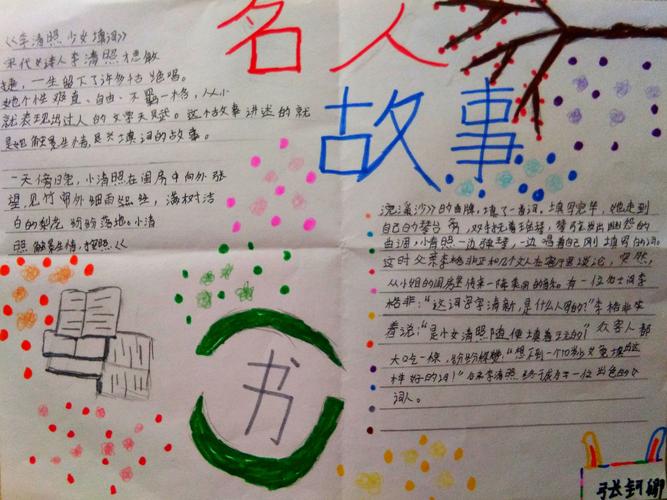 名人
故事
《李清照少女填词》
宋代女诗人李清照才思敏
捷,一生留下了许多千古绝唱。
她个性难直、自由、不羁一格,从小
就表现出过人的文学天赋。这个故事讲述的就
是她触景生情,即兴填词的故事。
一天傍晚,小清照在闺房中向外张
望,见竹帘外细雨, 满树洁
白的梨花纷纷落地。小清
照触景生情,按照《
浣溪沙》的曲牌,填了一首词。填写完毕,她走到
自己的琴台旁,双手抚着琴弦,琴声发出幽怨的
曲调,小清照一边弹琴,一边唱着自己刚填写的词。
这时父亲李格非正和几个文人在客厅里谈论,突然,
从小姐的闺房里传来一阵美丽的音乐。有一位女士问李
格非:“这词写得清新,是什么人写的?”李格非笑
着说:“是小女清照随便填着玩的!”众客人都
大吃一惊,纷纷称赞,“想不到一个10岁少女能填这
样好的词!”后来李清照终于成为了一位出色的女
词人。
书
张